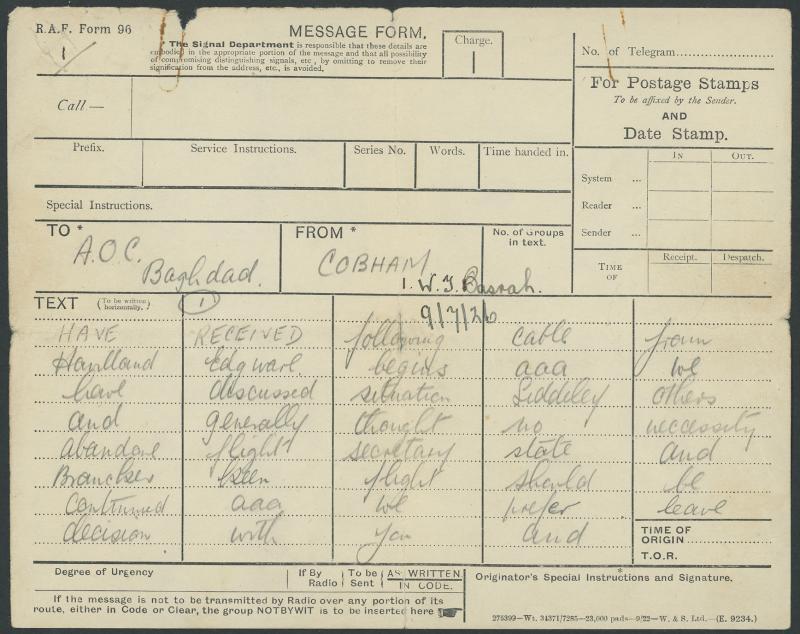 R.A.F. Form 96
1
MESSAGE FORM.
The Signal Department is responsible that these details are
embodied in the appropriate portion of the message and that all possibility
of compromising distinguishing signals, etc, by omitting to remove their
signification from the address, etc., is avoided.
Charge.
1
No. of Telegram
For Postage Stamps
To be affixed by the Sender.
AND
Date Stamp.
Call —
Prefix. Service Instructions. Series No. Words. Time handed in.
In Out.
System ...
Reader ...
Sender ...
Special Instructions.
TO * A.O.C. Baghdad.
FROM * COBHAM
1. W.T. Basrah.
No. of Groups in text.
TIME OF
Receipt. Despatch.
TEXT (To be written horizontally.) 1
9/7/26
HAVE RECEIVED following cable from
Edgware begins aaa we
have discussed situation Siddeley others
and generally thought no necessity
abandon flight secretary state and
Brancker keen flight should be
continued aaa we prefer leave
decision with you and
TIME OF ORIGIN
T.O.R.
Degree of Urgency
If By Radio
To be Sent
AS WRITTEN
IN CODE.
Originator's Special Instructions and Signature.
If the message is not to be transmitted by Radio over any portion of its
route, either in Code or Clear, the group NOTBYWIT is to be inserted here
276399—Wt. 34371/7285—23,000 pads—9/22—W. & S. Ltd.—(E. 9234.)